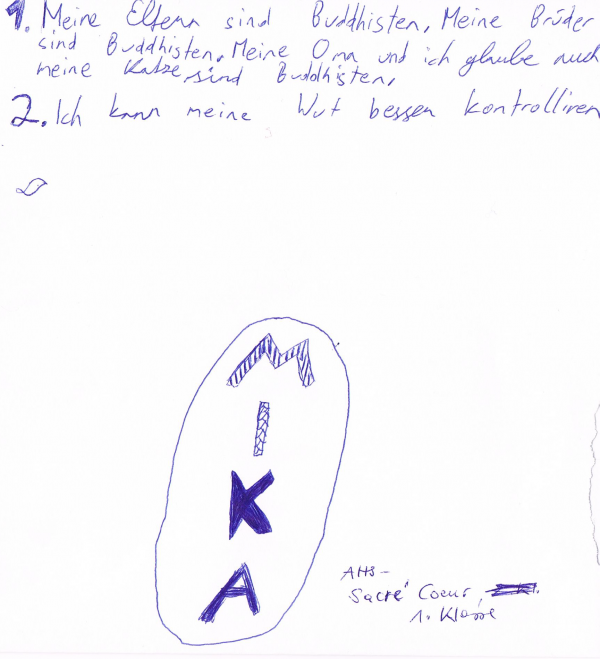 1. Meine Eltern sind Buddhisten, Meine Brüder
sind Buddhisten. Meine Oma und ich glaube auch
meine Katze sind Buddhisten.
2. Ich kann meine Wut besser kontrolliren
MIKA
AHS-
Sacré Coeur,
1. Klasse